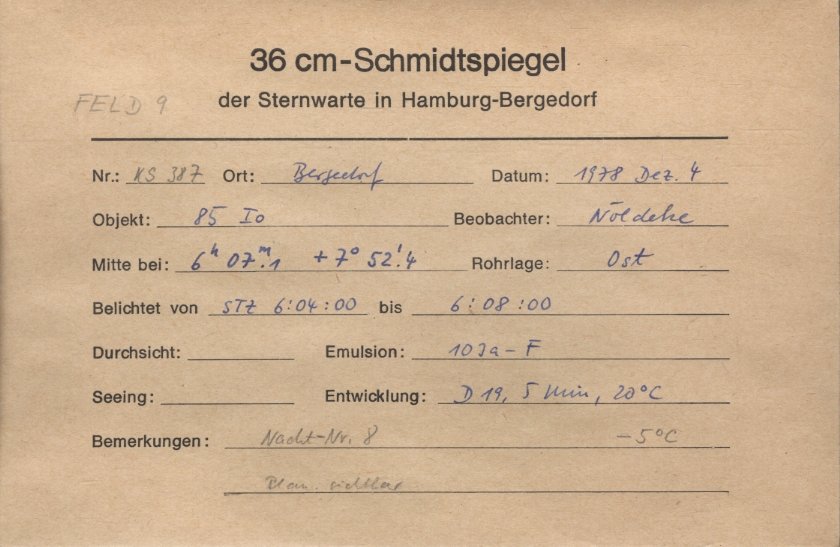 36 cm-Schmidtspiegel
FELD 9 der Sternwarte in Hamburg-Bergedorf
Nr.: KS 387 Ort: Bergedorf Datum: 1978 Dez. 4
Objekt: 85 Io Beobachter: Nöldeke
Mitte bei: 6ʰ 07ᵐ.1 +7° 52'.4 Rohrlage: Ost
Belichtet von STZ 6:04:00 bis 6:08:00
Durchsicht: Emulsion: 103a-F
Seeing: Entwicklung: D 19, 5 Min, 20°C
Bemerkungen: Nacht-Nr. 8 -5°C
Plan. sichtbar